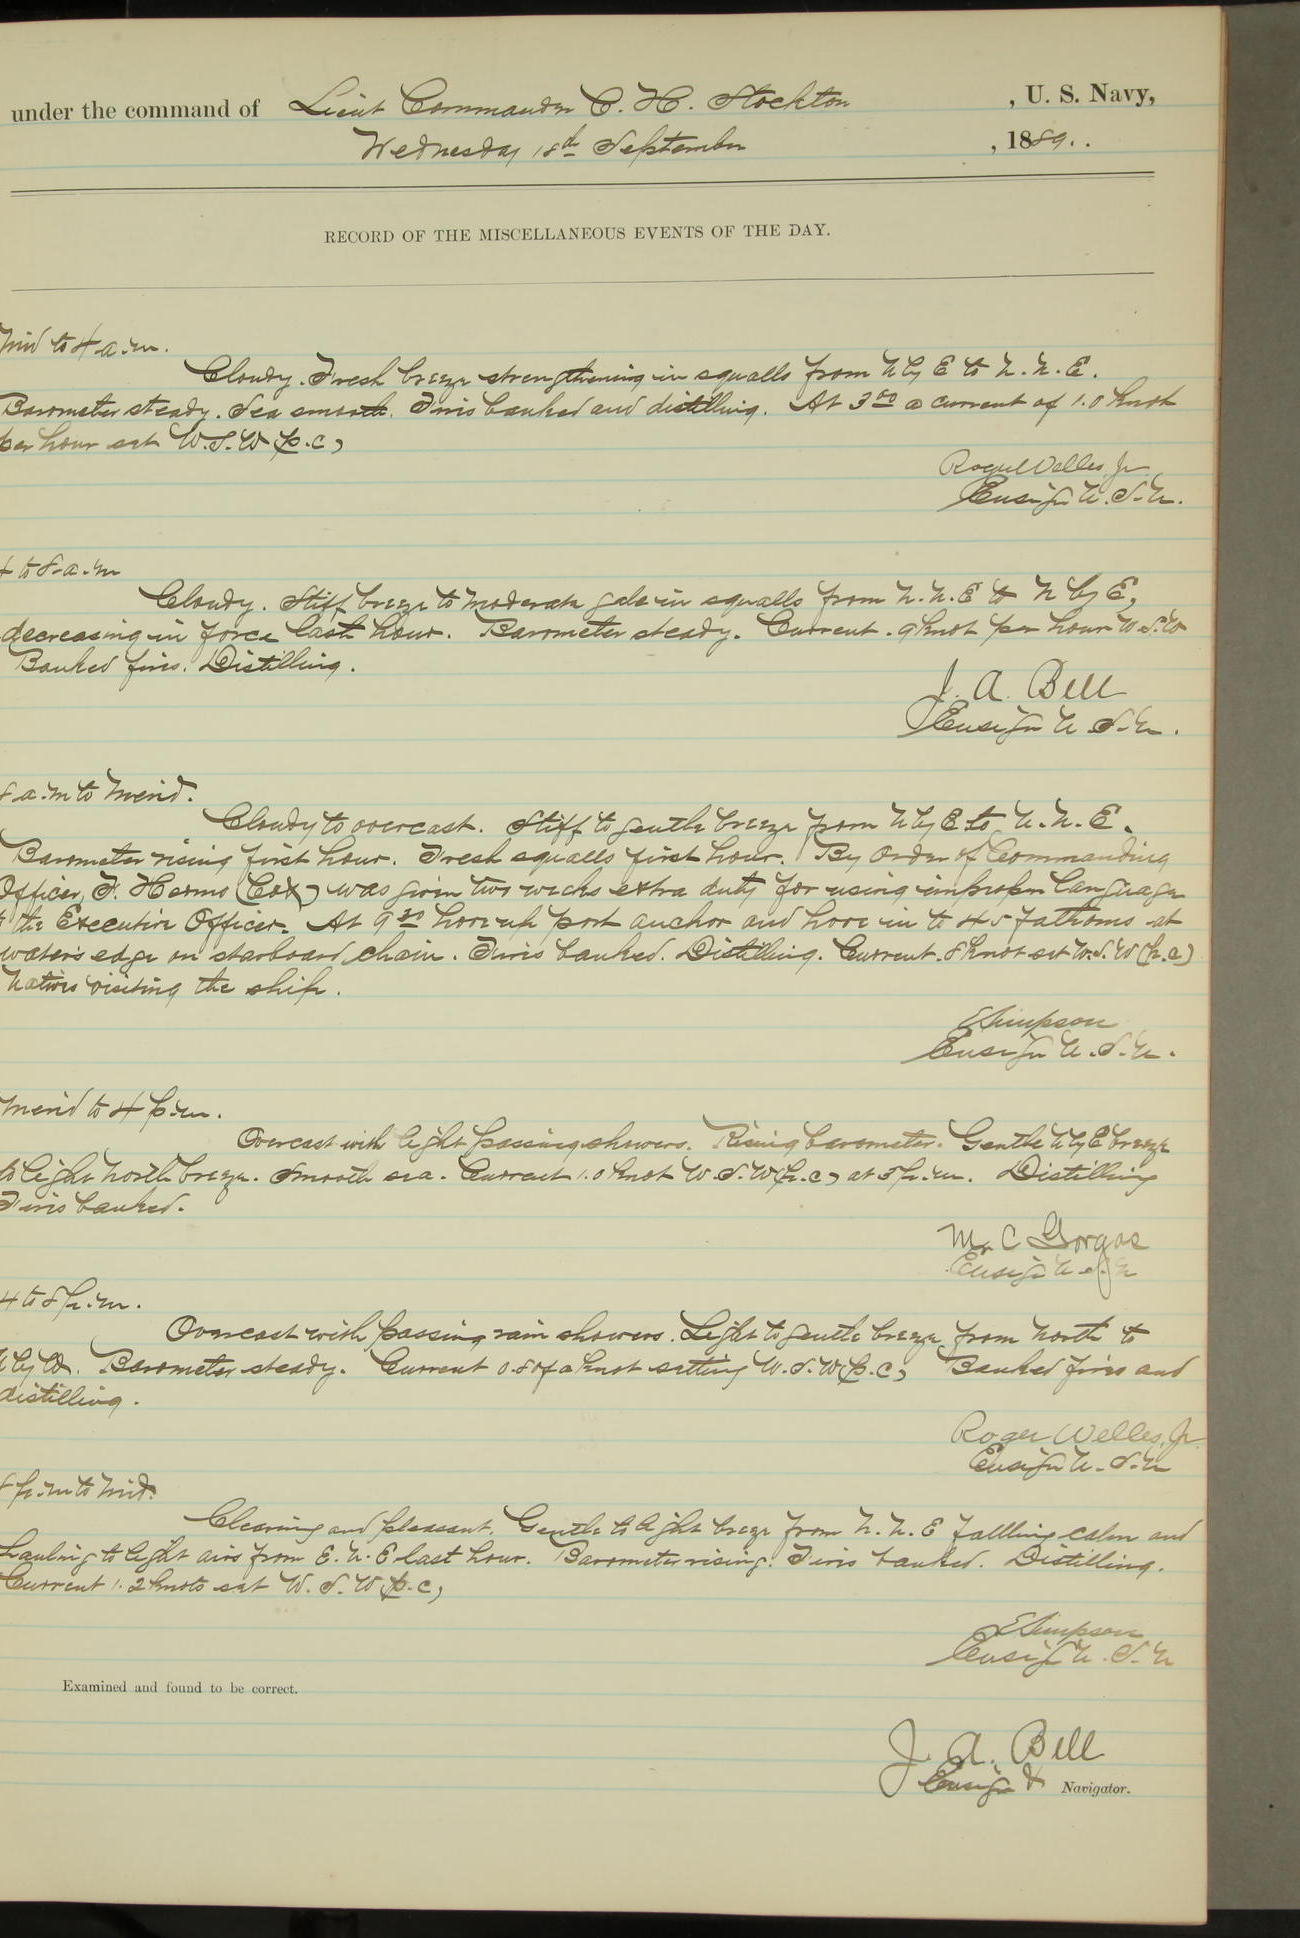 under the command of Lieut Commander C. H. Stockton, U. S. Navy,
Wednesday 18th September, 1889..
RECORD OF THE MISCELLANEOUS EVENTS OF THE DAY.
Mid to 4 a.m.
Cloudy. Fresh breeze strengthening in squalls from N by E to N.N.E.
Barometer steady. Sea smooth. Fires banked and distilling. At 3 00 a current of 1.0 knot
per hour set W.S.W (p.c)
Roger Welles, Jr
Ensign U.S.N.
4 to 8 a.m
Cloudy. Stiff breeze to moderate gale in squalls from N.N.E to N by E,
decreasing in force last hour. Barometer steady. Current .9 knot per hour W.S.W
Banked fires. Distilling.
J. A. Bell
Ensign U.S.N.
8 a.m to Merid.
Cloudy to overcast. Stiff to gentle breeze from N by E to N.N.E.
Barometer rising first hour. Fresh squalls first hour. By order of Commanding
Officer, F. Herms (Cox) was given two weeks extra duty for using improper language
to the Executive Officer. At 9 30 hove up port anchor and hove in to 45 fathoms at
water's edge on starboard chain. Fires banked. Distilling. Current .8 knot set W.S.W (p.c)
Natives visiting the ship.
E Simpson
Ensign U.S.N.
Merid to 4 p.m.
Overcast with light passing showers. Rising barometer. Gentle N by E breeze
to light North breeze. Smooth sea. Current 1.0 knot W.S.W (p.c) at 3 p.m. Distilling
Fires banked.
M. C Gorgas
Ensign U.S.N
4 to 8 p.m.
Overcast with passing rain showers. Light to gentle breeze from North to
N by W. Barometer steady. Current 0.8 of a knot setting W.S.W (p.c) Banked fires and
distilling.
Roger Welles, Jr
Ensign U.S.N
8 p.m to Mid.
Clearing and pleasant. Gentle to light breeze from N.N.E fallling calm and
hauling to light airs from E.N.E last hour. Barometer rising. Fires banked. Distilling.
Current 1.2 knots set W.S.W (p.c)
E Simpson
Ensign U.S.N
Examined and found to be correct.
J. A. Bell
Ensign & Navigator.